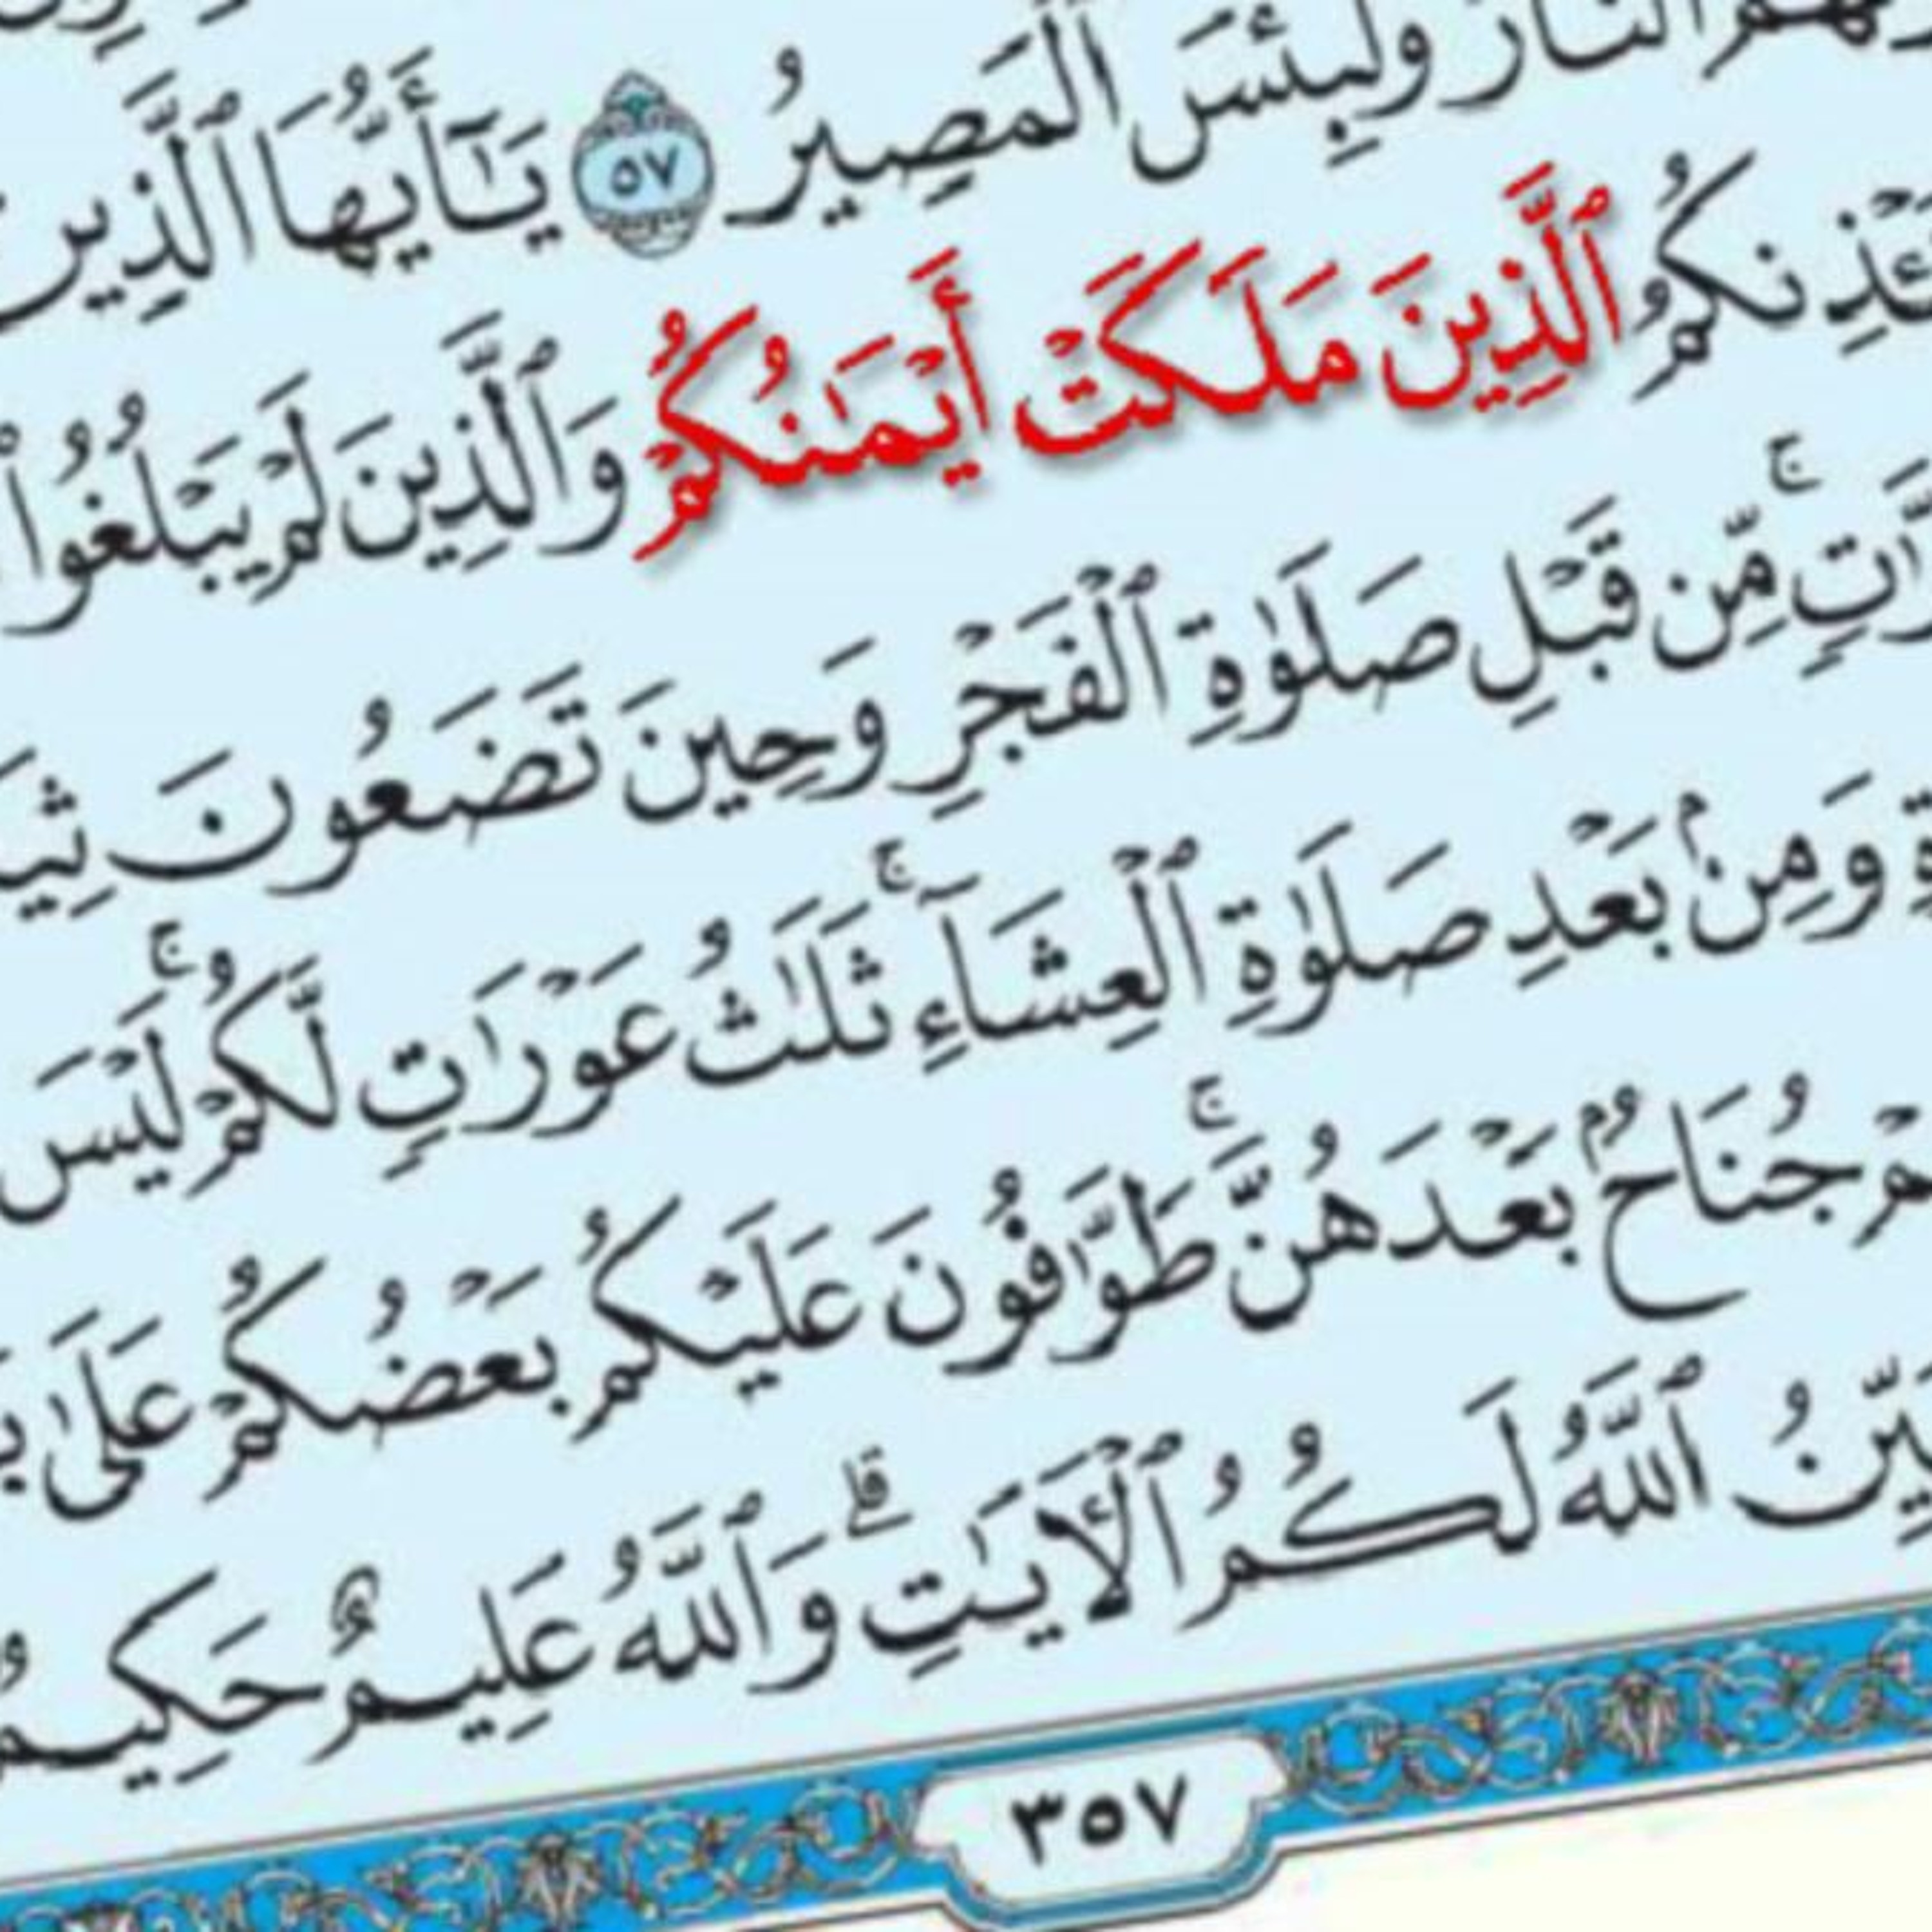 ٱلنَّارُ وَلَبِئۡسَ ٱلۡمَصِيرُ ٥٧ يَٰٓأَيُّهَا ٱلَّذِينَ
ٱلَّذِينَ مَلَكَتۡ أَيۡمَٰنُكُمۡ وَٱلَّذِينَ لَمۡ يَبۡلُغُواْ
مِّن قَبۡلِ صَلَوٰةِ ٱلۡفَجۡرِ وَحِينَ تَضَعُونَ
وَمِنۢ بَعۡدِ صَلَوٰةِ ٱلۡعِشَآءِۚ ثَلَٰثُ عَوۡرَٰتٖ لَّكُمۡۚ لَيۡسَ
جُنَاحُۢ بَعۡدَهُنَّۚ طَوَّٰفُونَ عَلَيۡكُم بَعۡضُكُمۡ عَلَىٰ
ٱللَّهُ لَكُمُ ٱلۡأٓيَٰتِۗ وَٱللَّهُ عَلِيمٌ حَكِيمٞ
٣٥٧